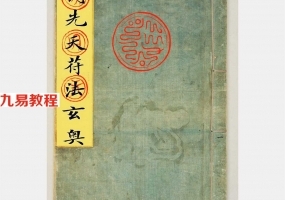 先天苻法玄奥
九易教程